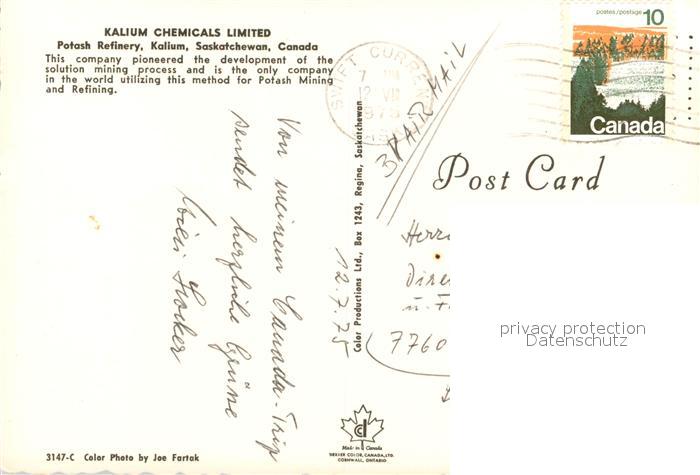 KALIUM CHEMICALS LIMITED
Potash Refinery, Kalium, Saskatchewan, Canada
This company pioneered the development of the
solution mining process and is the only company
in the world utilizing this method for Potash Mining
and Refining.
postes/postage 10
Canada
SWIFT CURRENT
AIR MAIL
Post Card
Color Productions Ltd., Box 1243, Regina, Saskatchewan
12.7.75
Von meinem Canada-Trip
sendet herzliche Grüsse
Herr
Dire
u.
7760
privacy protection
Datenschutz
Made in Canada
TRAVER COLOR, CANADA, LTD.
CORNWALL, ONTARIO
3147-C Color Photo by Joe Fartak